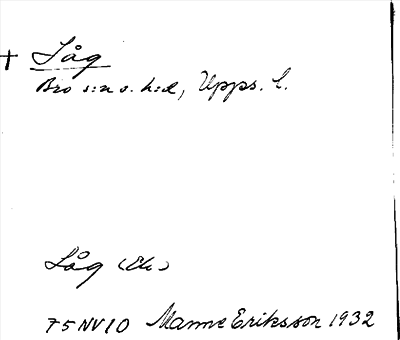 + Såg
Bro s:n o. h:d, Upps. l.
Såg (Ek.)
75NV10 Manne Eriksson 1932